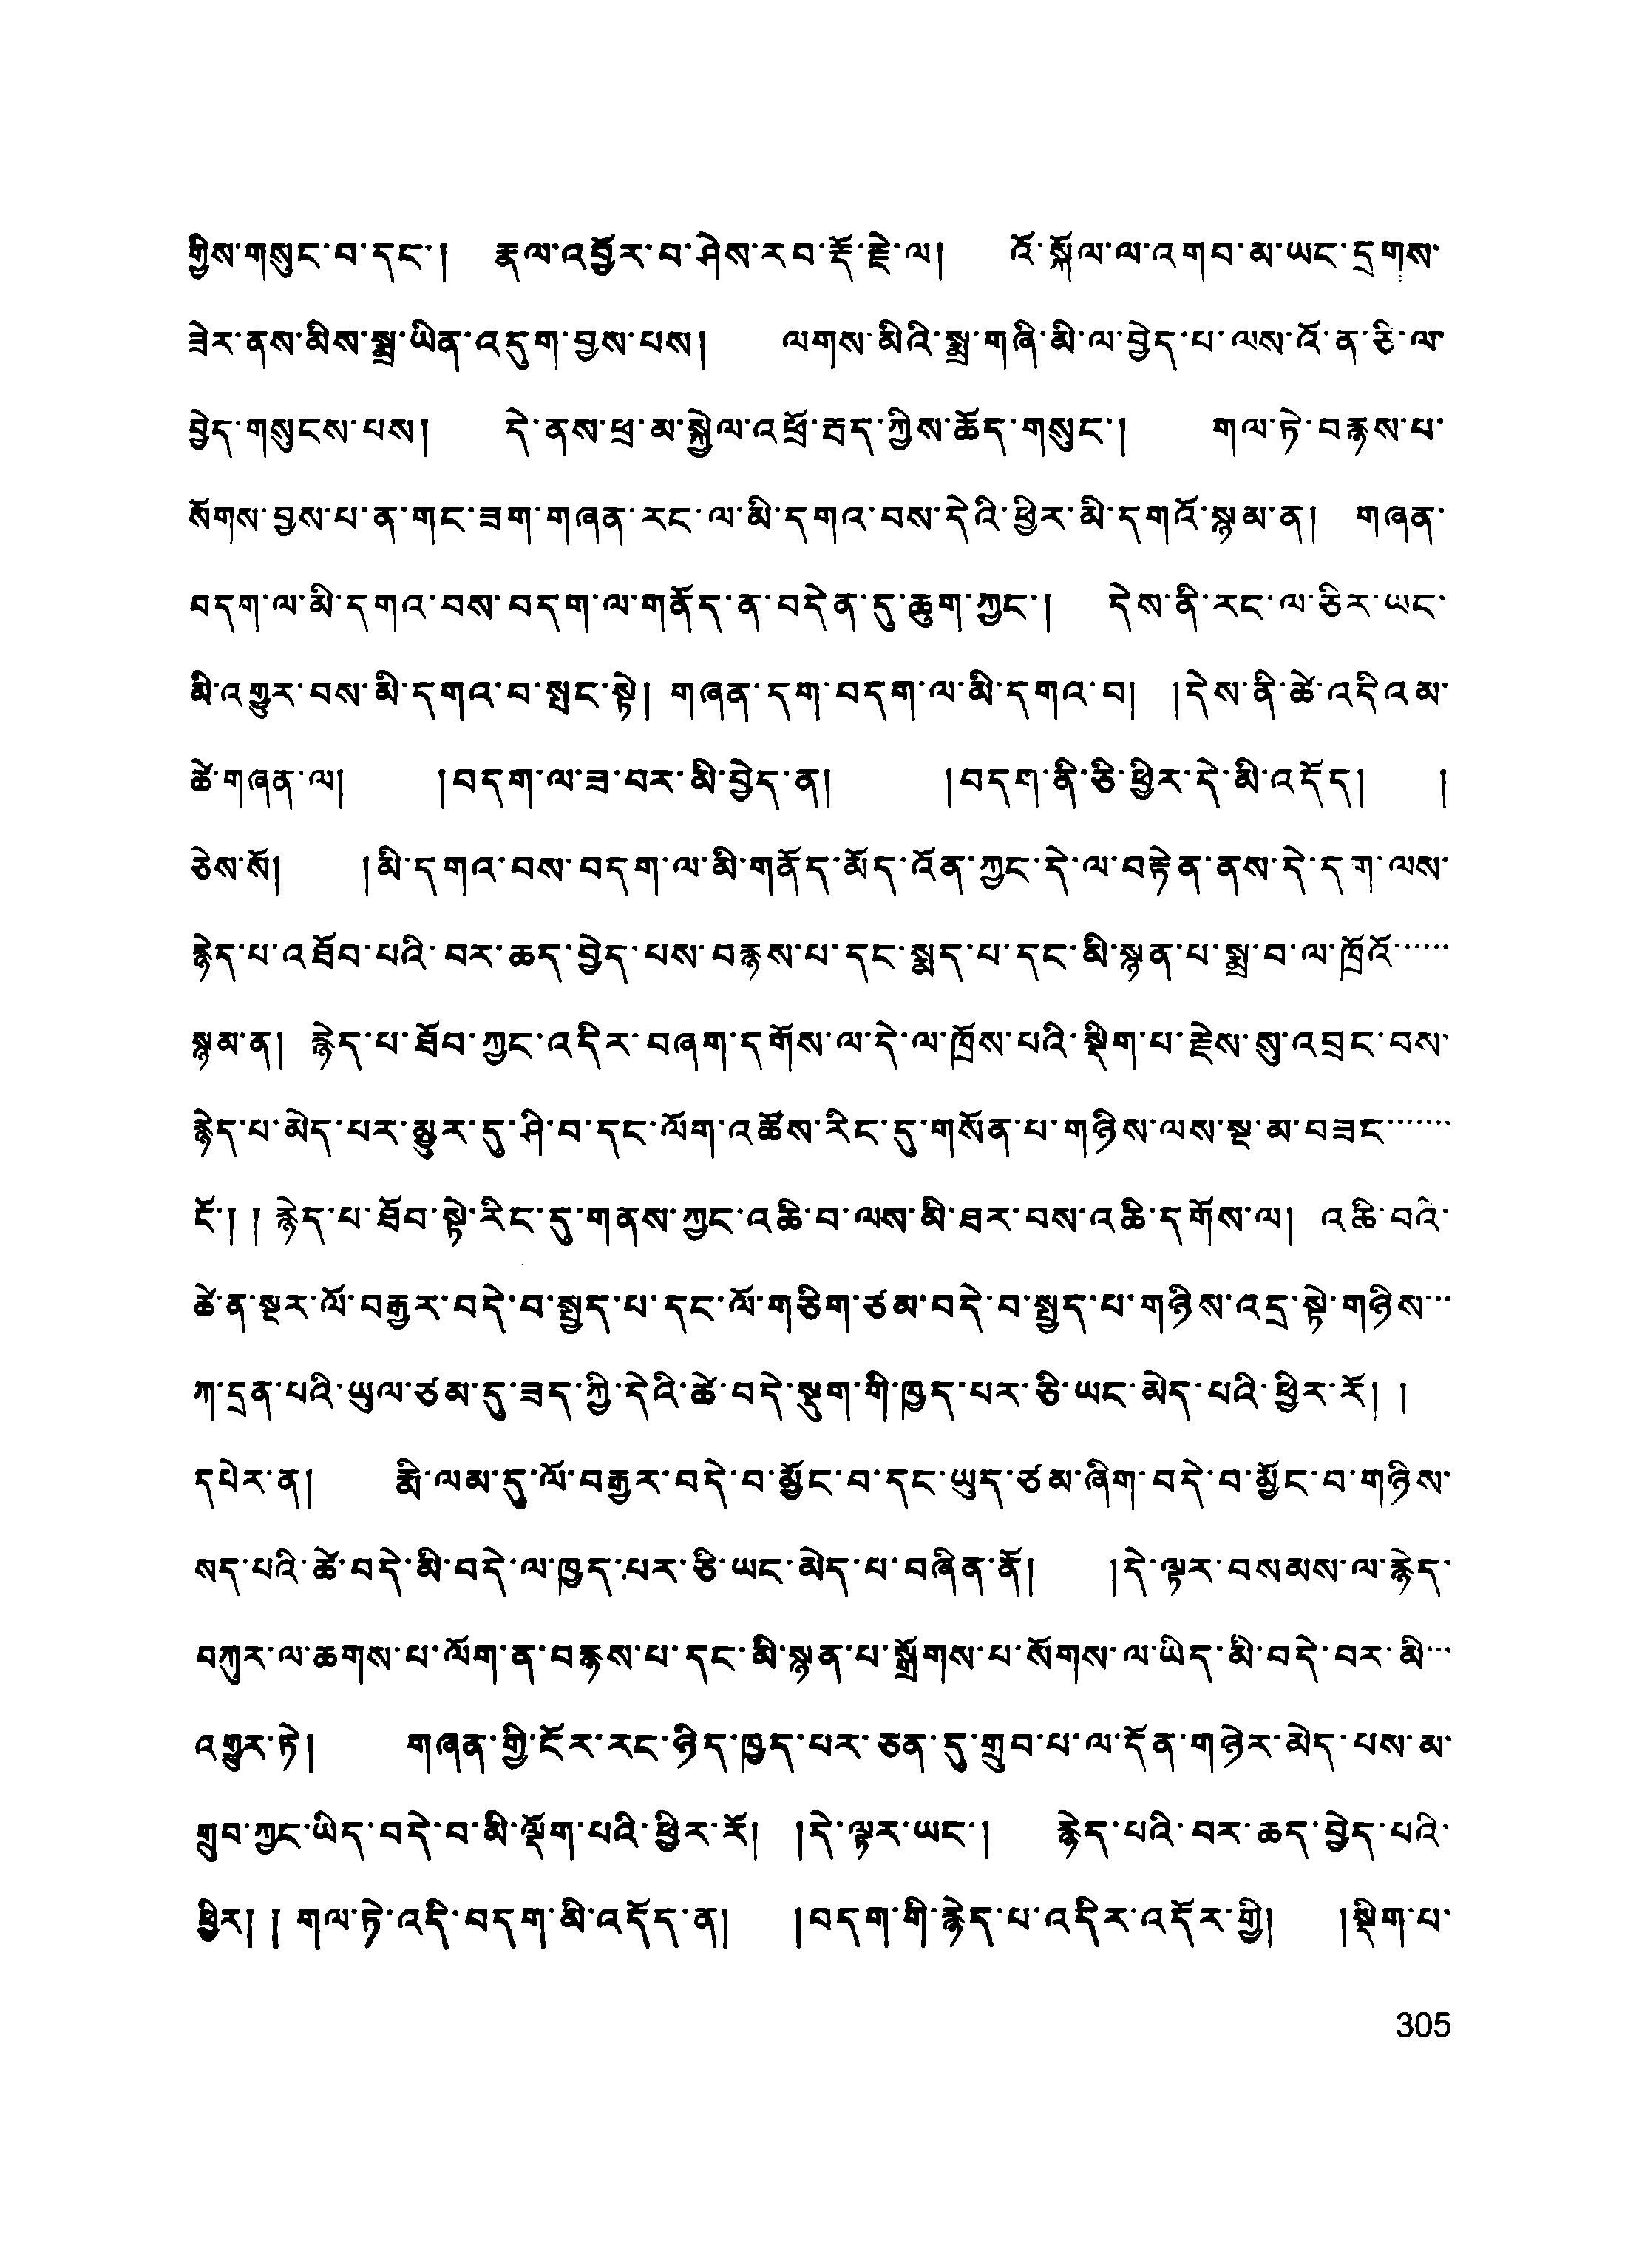 གྱིས་གསུང་བ་དང་། རྣལ་འབྱོར་བ་ཤེས་རབ་རྡོ་རྗེ་ལ། འོ་སྐོལ་ལ་འགབ་མ་ཡང་དྲགས་
ཟེར་ནས་མིས་སྨྲ་ཡིན་འདུག་བྱས་པས། ལགས་མིའི་སྨྲ་གཞི་མི་ལ་བྱེད་པ་ལས་འོ་ན་ཅི་ལ་
བྱེད་གསུངས་པས། དེ་ནས་ཕྲ་མ་སྐྱེལ་འཕྲོ་རྦད་ཀྱིས་ཆོད་གསུང་། གལ་ཏེ་བརྙས་པ་
སོགས་བྱས་པ་ན་གང་ཟག་གཞན་རང་ལ་མི་དགའ་བས་དེའི་ཕྱིར་མི་དགའོ་སྙམ་ན། གཞན་
བདག་ལ་མི་དགའ་བས་བདག་ལ་གནོད་ན་བདེན་དུ་ཆུག་ཀྱང་། དེས་ནི་རང་ལ་ཅིར་ཡང་
མི་འགྱུར་བས་མི་དགའ་བ་སྤང་སྟེ། གཞན་དག་བདག་ལ་མི་དགའ་བ། །དེས་ནི་ཚེ་འདིའམ་
ཚེ་གཞན་ལ། །བདག་ལ་ཟ་བར་མི་བྱེད་ན། །བདག་ནི་ཅི་ཕྱིར་དེ་མི་འདོད། །
ཅེས་སོ། །མི་དགའ་བས་བདག་ལ་མི་གནོད་མོད་འོན་ཀྱང་དེ་ལ་བརྟེན་ནས་དེ་དག་ལས་
རྙེད་པ་འཐོབ་པའི་བར་ཆད་བྱེད་པས་བརྙས་པ་དང་སྨད་པ་དང་མི་སྙན་པ་སྨྲ་བ་ལ་ཁྲོའོ་……
སྙམ་ན། རྙེད་པ་ཐོབ་ཀྱང་འདིར་བཞག་དགོས་ལ་དེ་ལ་ཁྲོས་པའི་སྡིག་པ་རྗེས་སུ་འབྲང་བས་
རྙེད་པ་མེད་པར་མྱུར་དུ་ཤི་བ་དང་ལོག་འཚོས་རིང་དུ་གསོན་པ་གཉིས་ལས་སྔ་མ་བཟང་……
ངོ་། །རྙེད་པ་ཐོབ་སྟེ་རིང་དུ་གནས་ཀྱང་འཆི་བ་ལས་མི་ཐར་བས་འཆི་དགོས་ལ། འཆི་བའི་
ཚེ་ན་སྔར་ལོ་བརྒྱར་བདེ་བ་སྤྱད་པ་དང་ལོ་གཅིག་ཙམ་བདེ་བ་སྤྱད་པ་གཉིས་འདྲ་སྟེ་གཉིས་…
ཀ་དྲན་པའི་ཡུལ་ཙམ་དུ་ཟད་ཀྱི་དེའི་ཚེ་བདེ་སྡུག་གི་ཁྱད་པར་ཅི་ཡང་མེད་པའི་ཕྱིར་རོ། །
དཔེར་ན། རྨི་ལམ་དུ་ལོ་བརྒྱར་བདེ་བ་མྱོང་བ་དང་ཡུད་ཙམ་ཞིག་བདེ་བ་མྱོང་བ་གཉིས་
སད་པའི་ཚེ་བདེ་མི་བདེ་ལ་ཁྱད་པར་ཅི་ཡང་མེད་པ་བཞིན་ནོ། །དེ་ལྟར་བསམས་ལ་རྙེད་
བཀུར་ལ་ཆགས་པ་ལོག་ན་བརྙས་པ་དང་མི་སྙན་པ་སྒྲོགས་པ་སོགས་ལ་ཡིད་མི་བདེ་བར་མི་…
འགྱུར་ཏེ། གཞན་གྱི་ངོར་རང་ཉིད་ཁྱད་པར་ཅན་དུ་གྲུབ་པ་ལ་དོན་གཉེར་མེད་པས་མ་
གྲུབ་ཀྱང་ཡིད་བདེ་བ་མི་ལྡོག་པའི་ཕྱིར་རོ། །དེ་ལྟར་ཡང་། རྙེད་པའི་བར་ཆད་བྱེད་པའི་
ཕྱིར། །གལ་ཏེ་འདི་བདག་མི་འདོད་ན། །བདག་གི་རྙེད་པ་འདིར་འདོར་གྱི། །སྡིག་པ་
305